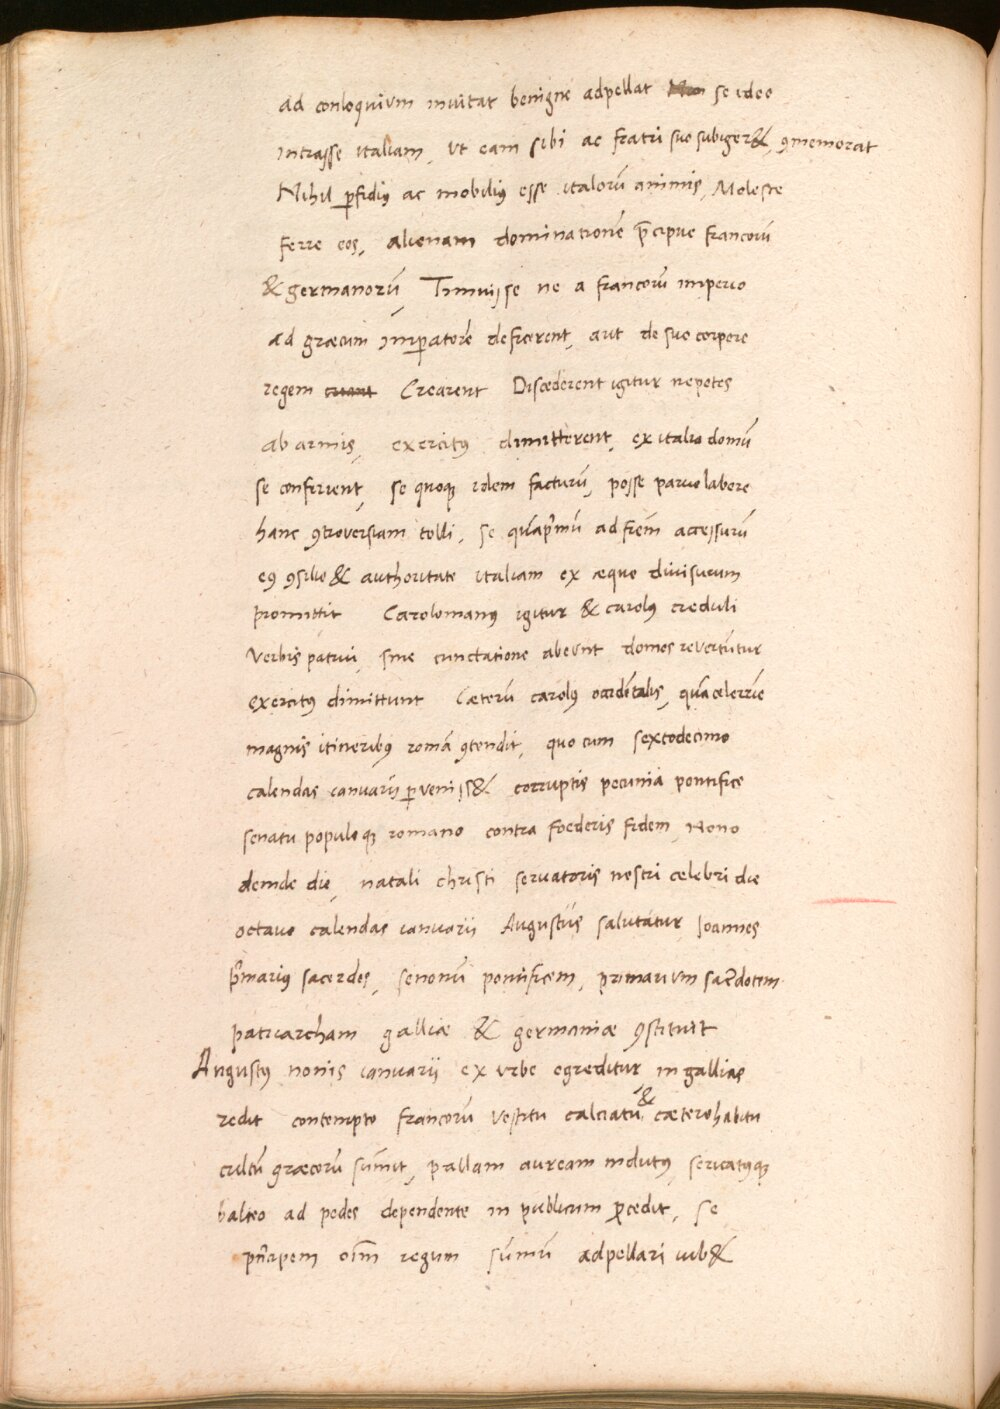 ad conloquium inuitat benigne adpellat se ideo
intrasse italiam, ut eam sibi ac fratri suo subiger&, ꝯmemorat
Nihil ꝑfidiꝰ ac mobiliꝰ esse italorū animis, Moleste
ferre eos, alienam dominationē p̄cipue francorū
& germanorū, Timuisse ne a francorū imperio
ad græcum imꝑatorē deficerent, aut de suo corpore
regem creant Crearent Discederent igitur nepotes
ab armis, exercitꝰ dimitterent, ex italia domū
se conferrent, se quoqꝫ idem facturū, posse paruo labore
hanc ꝯtroversiam tolli, se quāprimū ad frēm accessurū
eꝰ ꝯsilio & authoritate italiam ex æquo diuisurum
promittit Carolomanꝰ igitur & carolꝰ creduli
verbis patrui, sine cunctatione abeunt domos revertūtur
exercitꝰ dimittunt Cæterū carolꝰ occidētalis, quā celerrime
magnis itineribꝰ romā ꝯtendit, quo cum sextodecimo
calendas ianuarij ꝑveniss& corruptis pecunia pontifice
senatu populoqꝫ romano contra foederis fidem, Nono
deinde die, natali christi servatoris nostri celebri die
octavo calendas ianuarii Augustus salutatur Ioannes
primariꝰ sacerdos, senonū pontificem, primarium sacerdotem
patriarcham galliæ & germaniæ ꝯstituit
Augustꝰ nonis ianuarii ex urbe egreditur in gallias
redit contempto francorū vestitu calciatu & cætero habitu
cultū græcorū sumit, pallam auream indutꝰ, sericatꝰqꝫ
balteo ad pedes dependente in publicum ꝓcedit, se
pn̄cipem oīm regum sūmū adpellari iub&